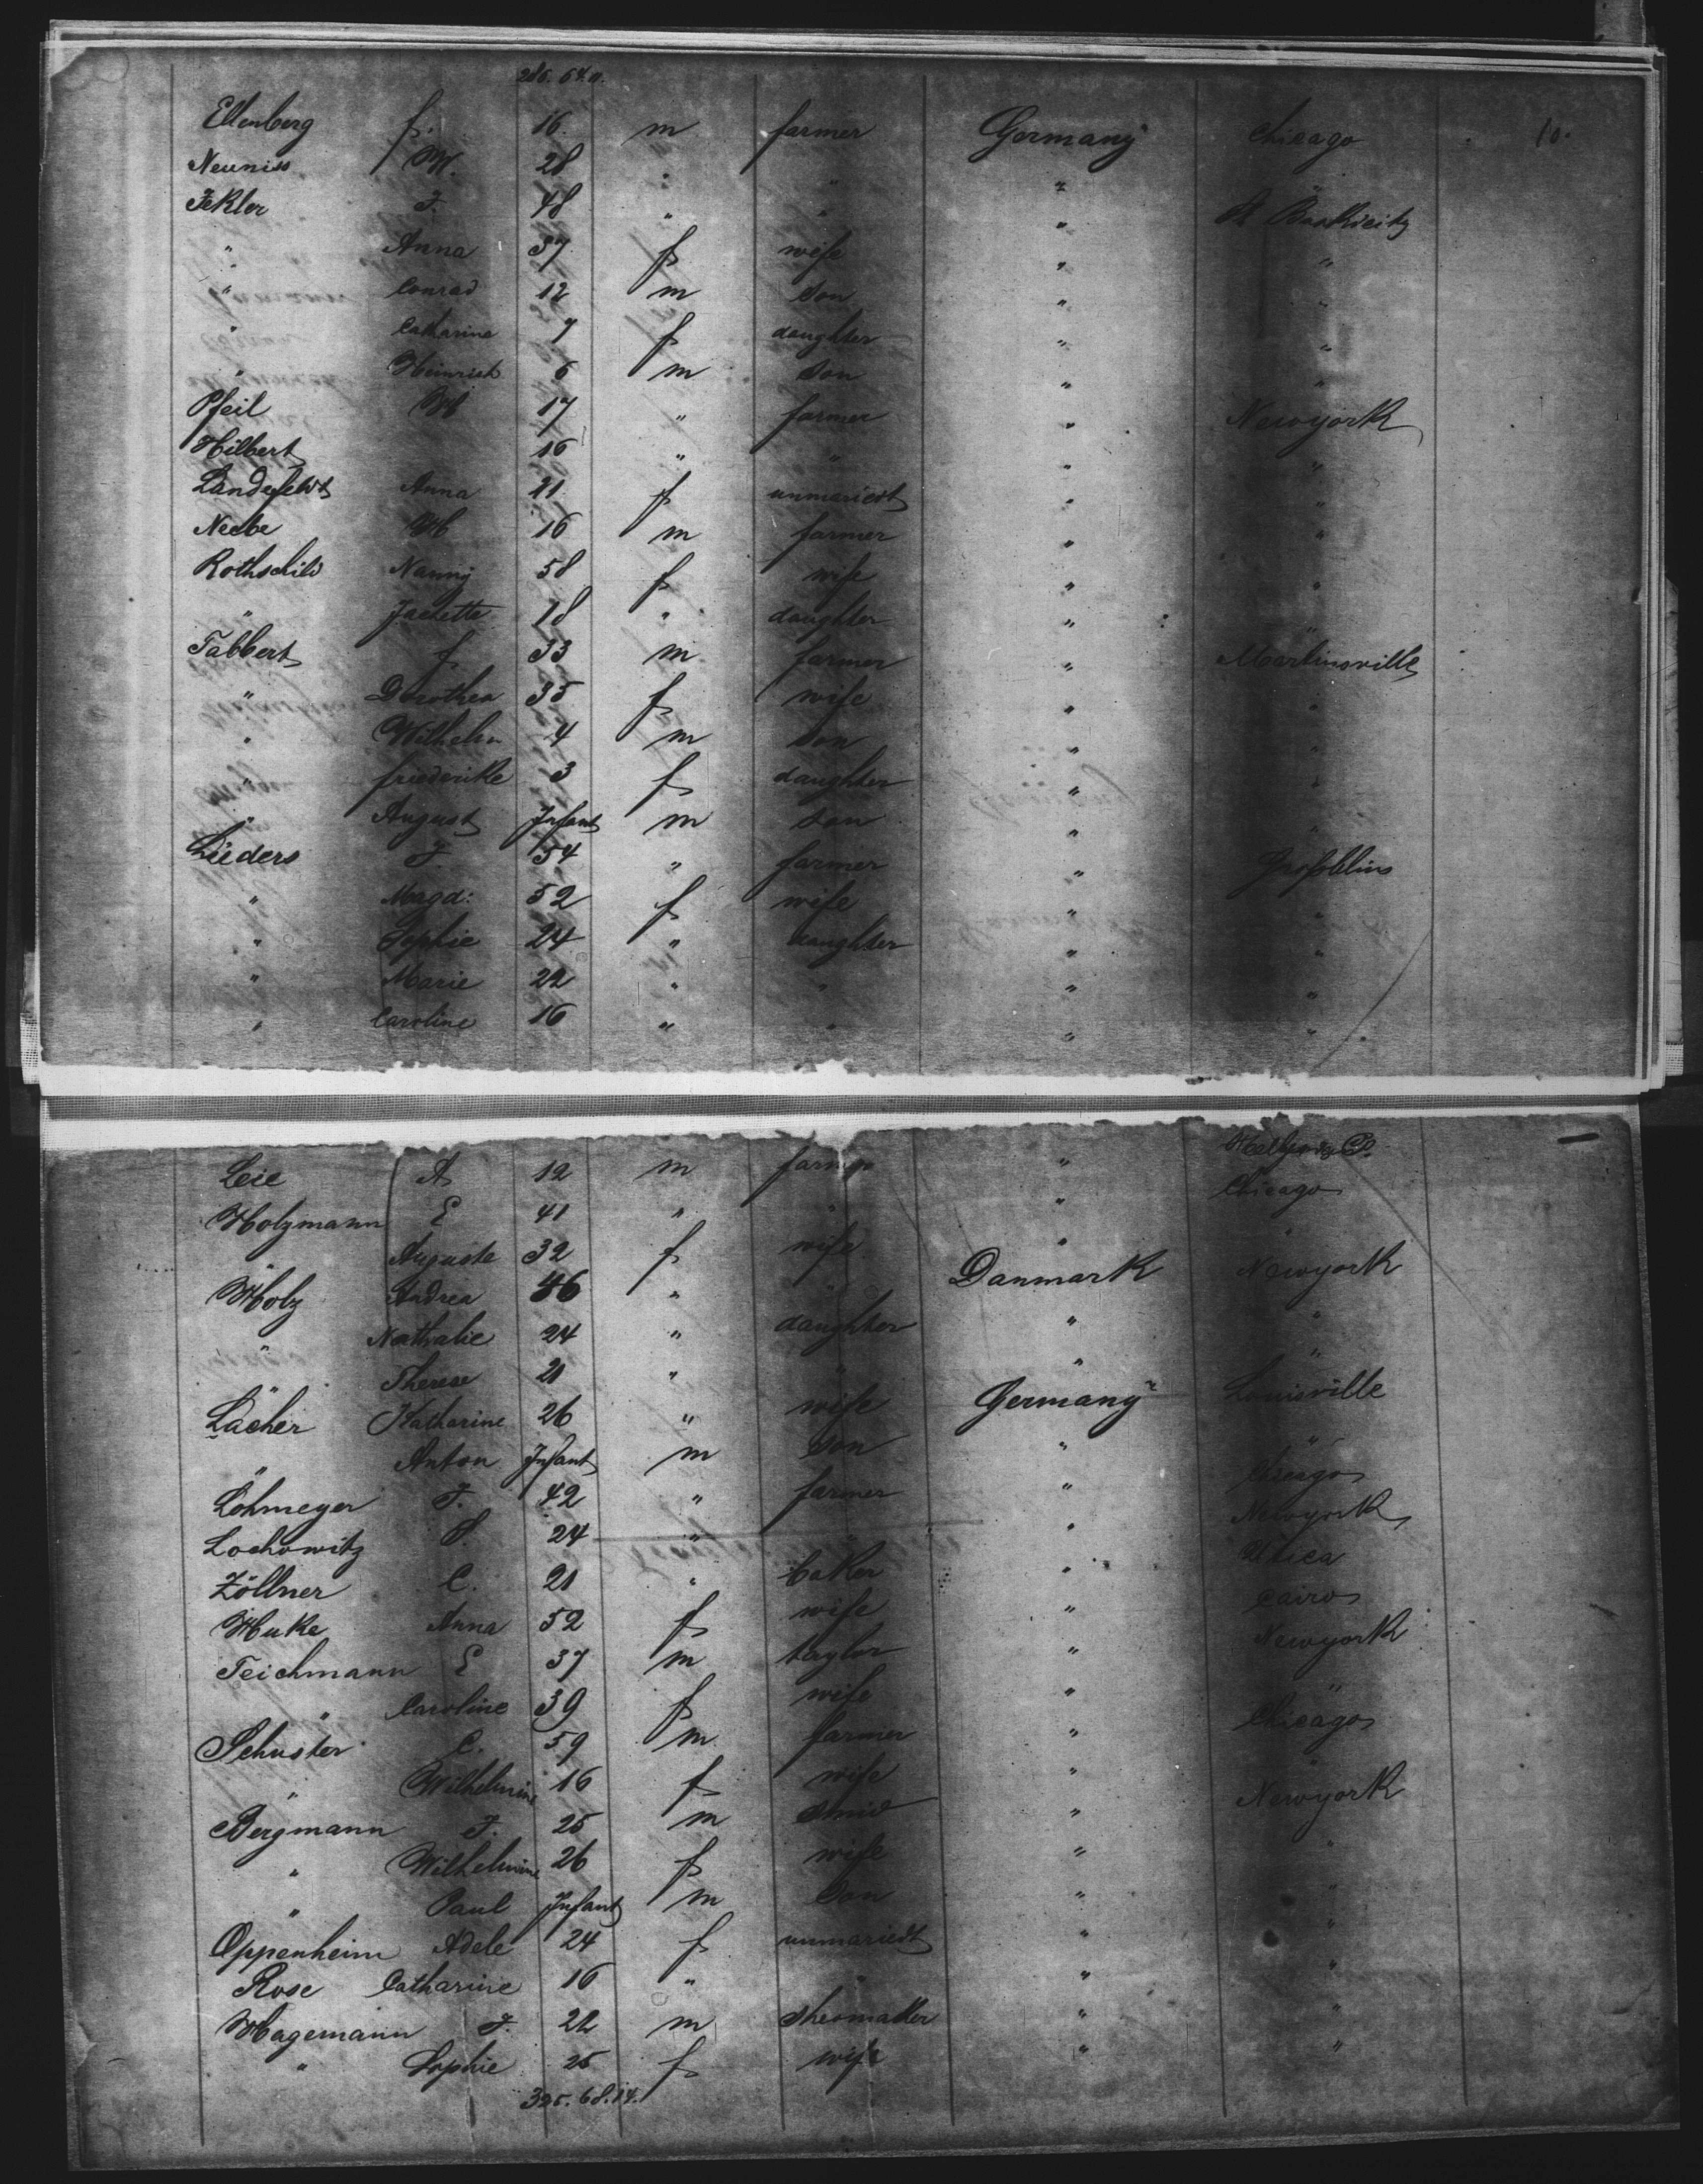 286. 54. 11.
Ellenberg f. 16. m farmer Germany Chicago 10.
Neuniss W. 28 " " "
Fekler J. 48 " " "
" Anna 37 f wife " "
" Conrad 12 m son " "
" Catharina 7 f daughter " "
" Heinrich 6 m son " "
Pfeil W 17 " farmer " Newyork
Hilbert 16 " " " "
Landefeldt Anna 21 f unmariedt " "
Neebe W 16 m farmer " "
Rothschild Nanny 58 f wife " "
" Jachette 18 " daughter " "
Tabbert f 33 m farmer " Martinsville
" Dorothea 35 f wife " "
" Wilhelm 4 m son " "
" friederike 3 f daughter " "
" August Infant m son " "
Lüders J. 54 " farmer "
" Magd: 52 f wife " "
" Sophie 24 " daughter " "
" Marie 22 " " " "
" Caroline 16 " " " "
Leie A 12 m farmer "
Holzmann E 41 " " " Chicago
" Auguste 32 f wife " "
Holz Andrea 46 " " Danmark Newyork
" Nathalie 24 " daughter " "
" Therese 21 " " " "
Lächer Katharine 26 " wife Germany Louisville
" Anton Infant m son " "
Löhmeyer J. 42 " farmer " Chicago
Lochowitz S. 24 " " " Newyork
Zöllner C. 21 " baker " Utica
Huke Anna 52 f wife " Cairo
Teichmann E 37 m taylor " Newyork
" Caroline 39 f wife " "
Schuster C. 59 m farmer " Chicago
" Wilhelmine 16 f wife " "
Bergmann J. 25 m smid " Newyork
" Wilhelmine 26 f wife " "
" Paul Infant m son " "
Oppenheim Adele 24 f unmariedt " "
Rose Catharine 16 " " " "
Hagemann J. 22 m shoemaker " "
" Sophie 25 f wife " "
325. 68. 14.